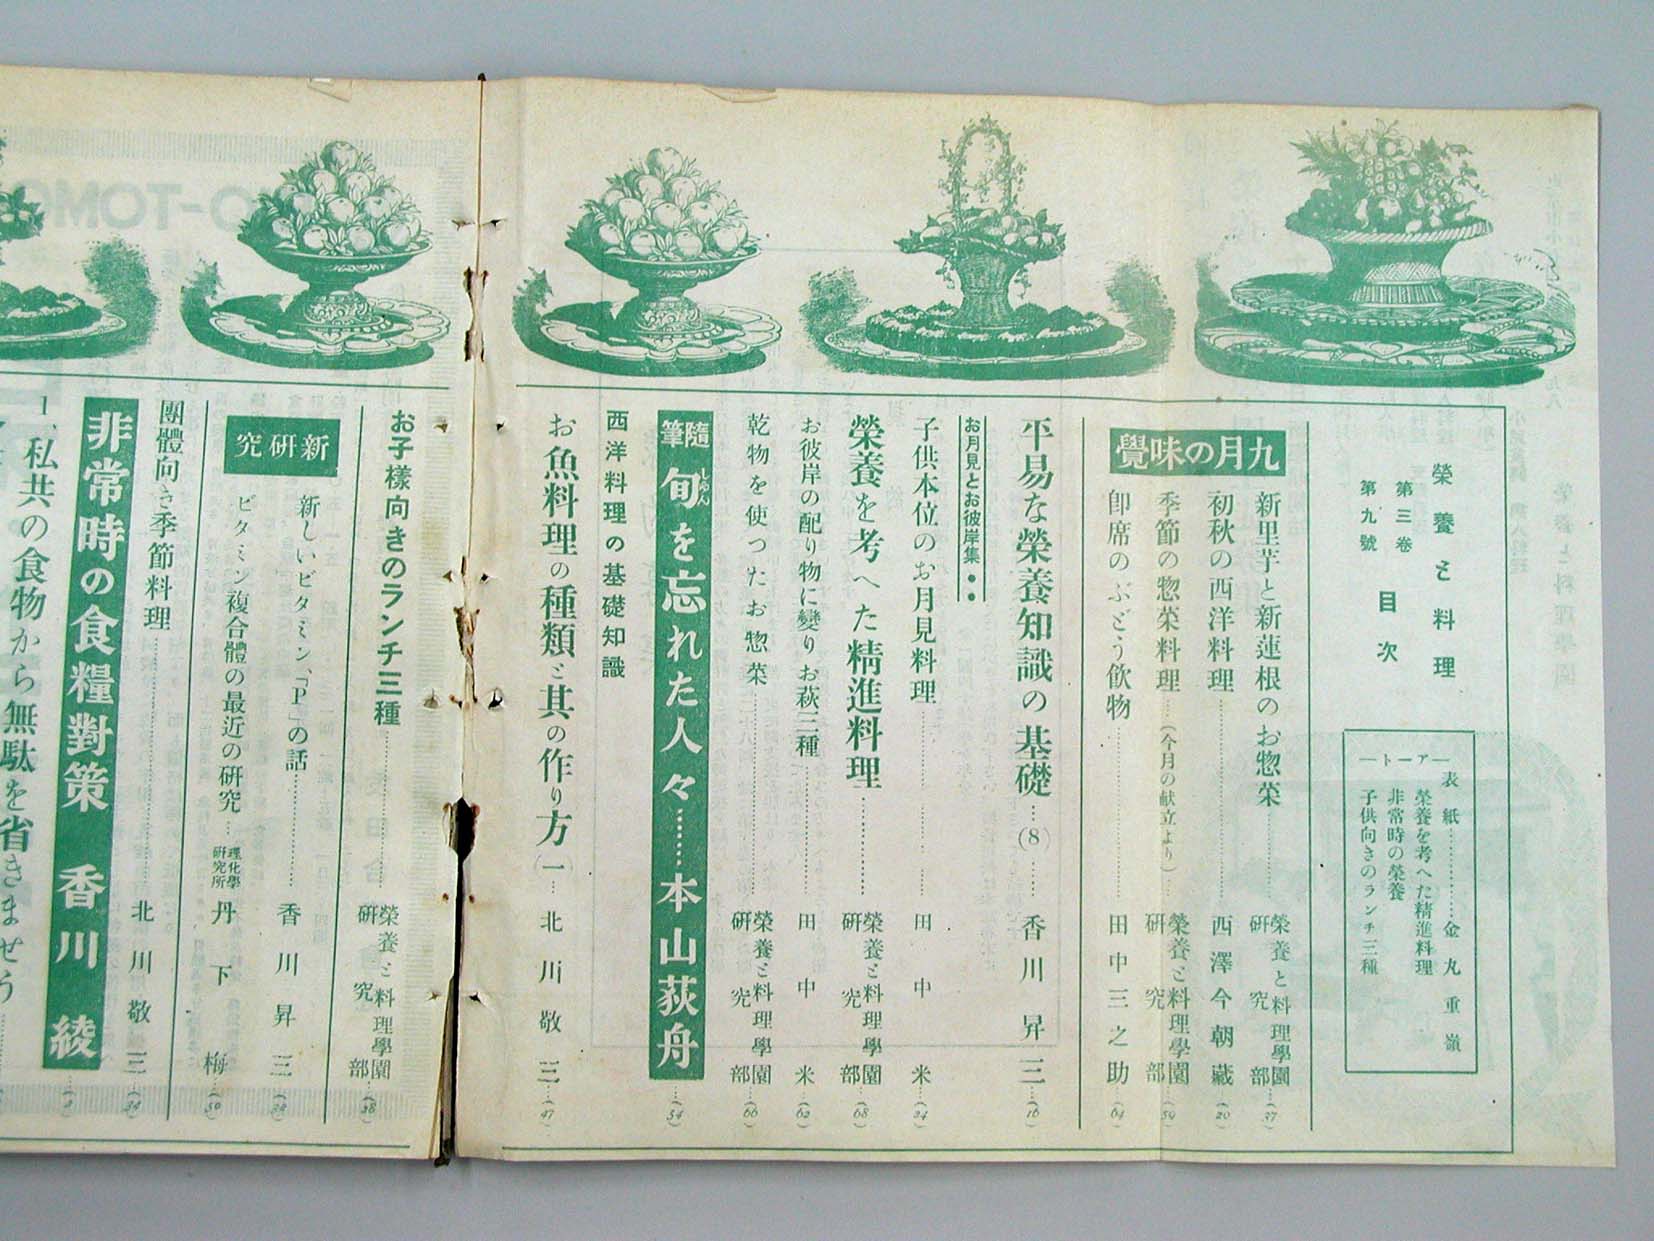 榮養と料理
第三卷
第九號
目次
表紙………金丸重嶺
―アート―
榮養を考へた精進料理
非常時の榮養
子供向きのランチ三種
九月の味覺
新里芋と新蓮根のお惣菜……榮養と料理學園研究部…(37)
初秋の西洋料理……西澤今朝藏…(20)
季節の惣菜料理…(今月の献立より)…榮養と料理學園研究部…(59)
卽席のぶどう飲物……田中三之助…(64)
平易な榮養知識の基礎…(8)…香川昇三…(16)
お月見とお彼岸集
子供本位のお月見料理……田中米…(24)
榮養を考へた精進料理……榮養と料理學園研究部…(68)
お彼岸の配り物に變りお萩三種……田中米…(62)
乾物を使つたお惣菜……榮養と料理學園研究部…(66)
隨筆 旬を忘れた人々……本山荻舟…(54)
しゅん
西洋料理の基礎知識
お魚料理の種類と其の作り方(一…北川敬三…(47)
お子樣向きのランチ三種……榮養と料理學園研究部…(28)
新研究
新しいビタミン「P」の話……香川昇三
ビタミン複合體の最近の研究…理化學研究所 丹下梅…(50)
團體向き季節料理……北川敬三
非常時の食糧對策 香川綾
1、私共の食物から無駄を省きませう